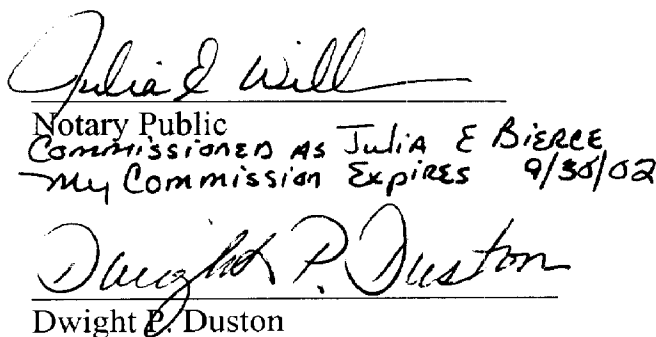 Julia E Will
Notary Public
Commissioned As Julia E Bierce
My Commission Expires 9/30/02
Dwight P. Duston
Dwight P. Duston